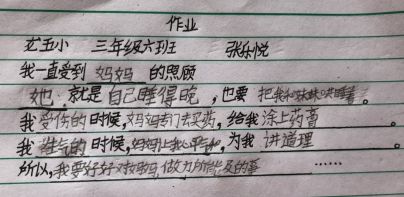 作业
芷五小 三年级六班 张乐悦
我一直受到 妈妈 的照顾
她 就是自己睡得晚，也要 把我和妹妹哄睡着。
我受伤的时候，妈妈专门去买药，给我涂上药膏。
我生气的时候，妈妈让我心平气和，为我讲道理。
所以，我要好好对妈妈，做力所能及的事……